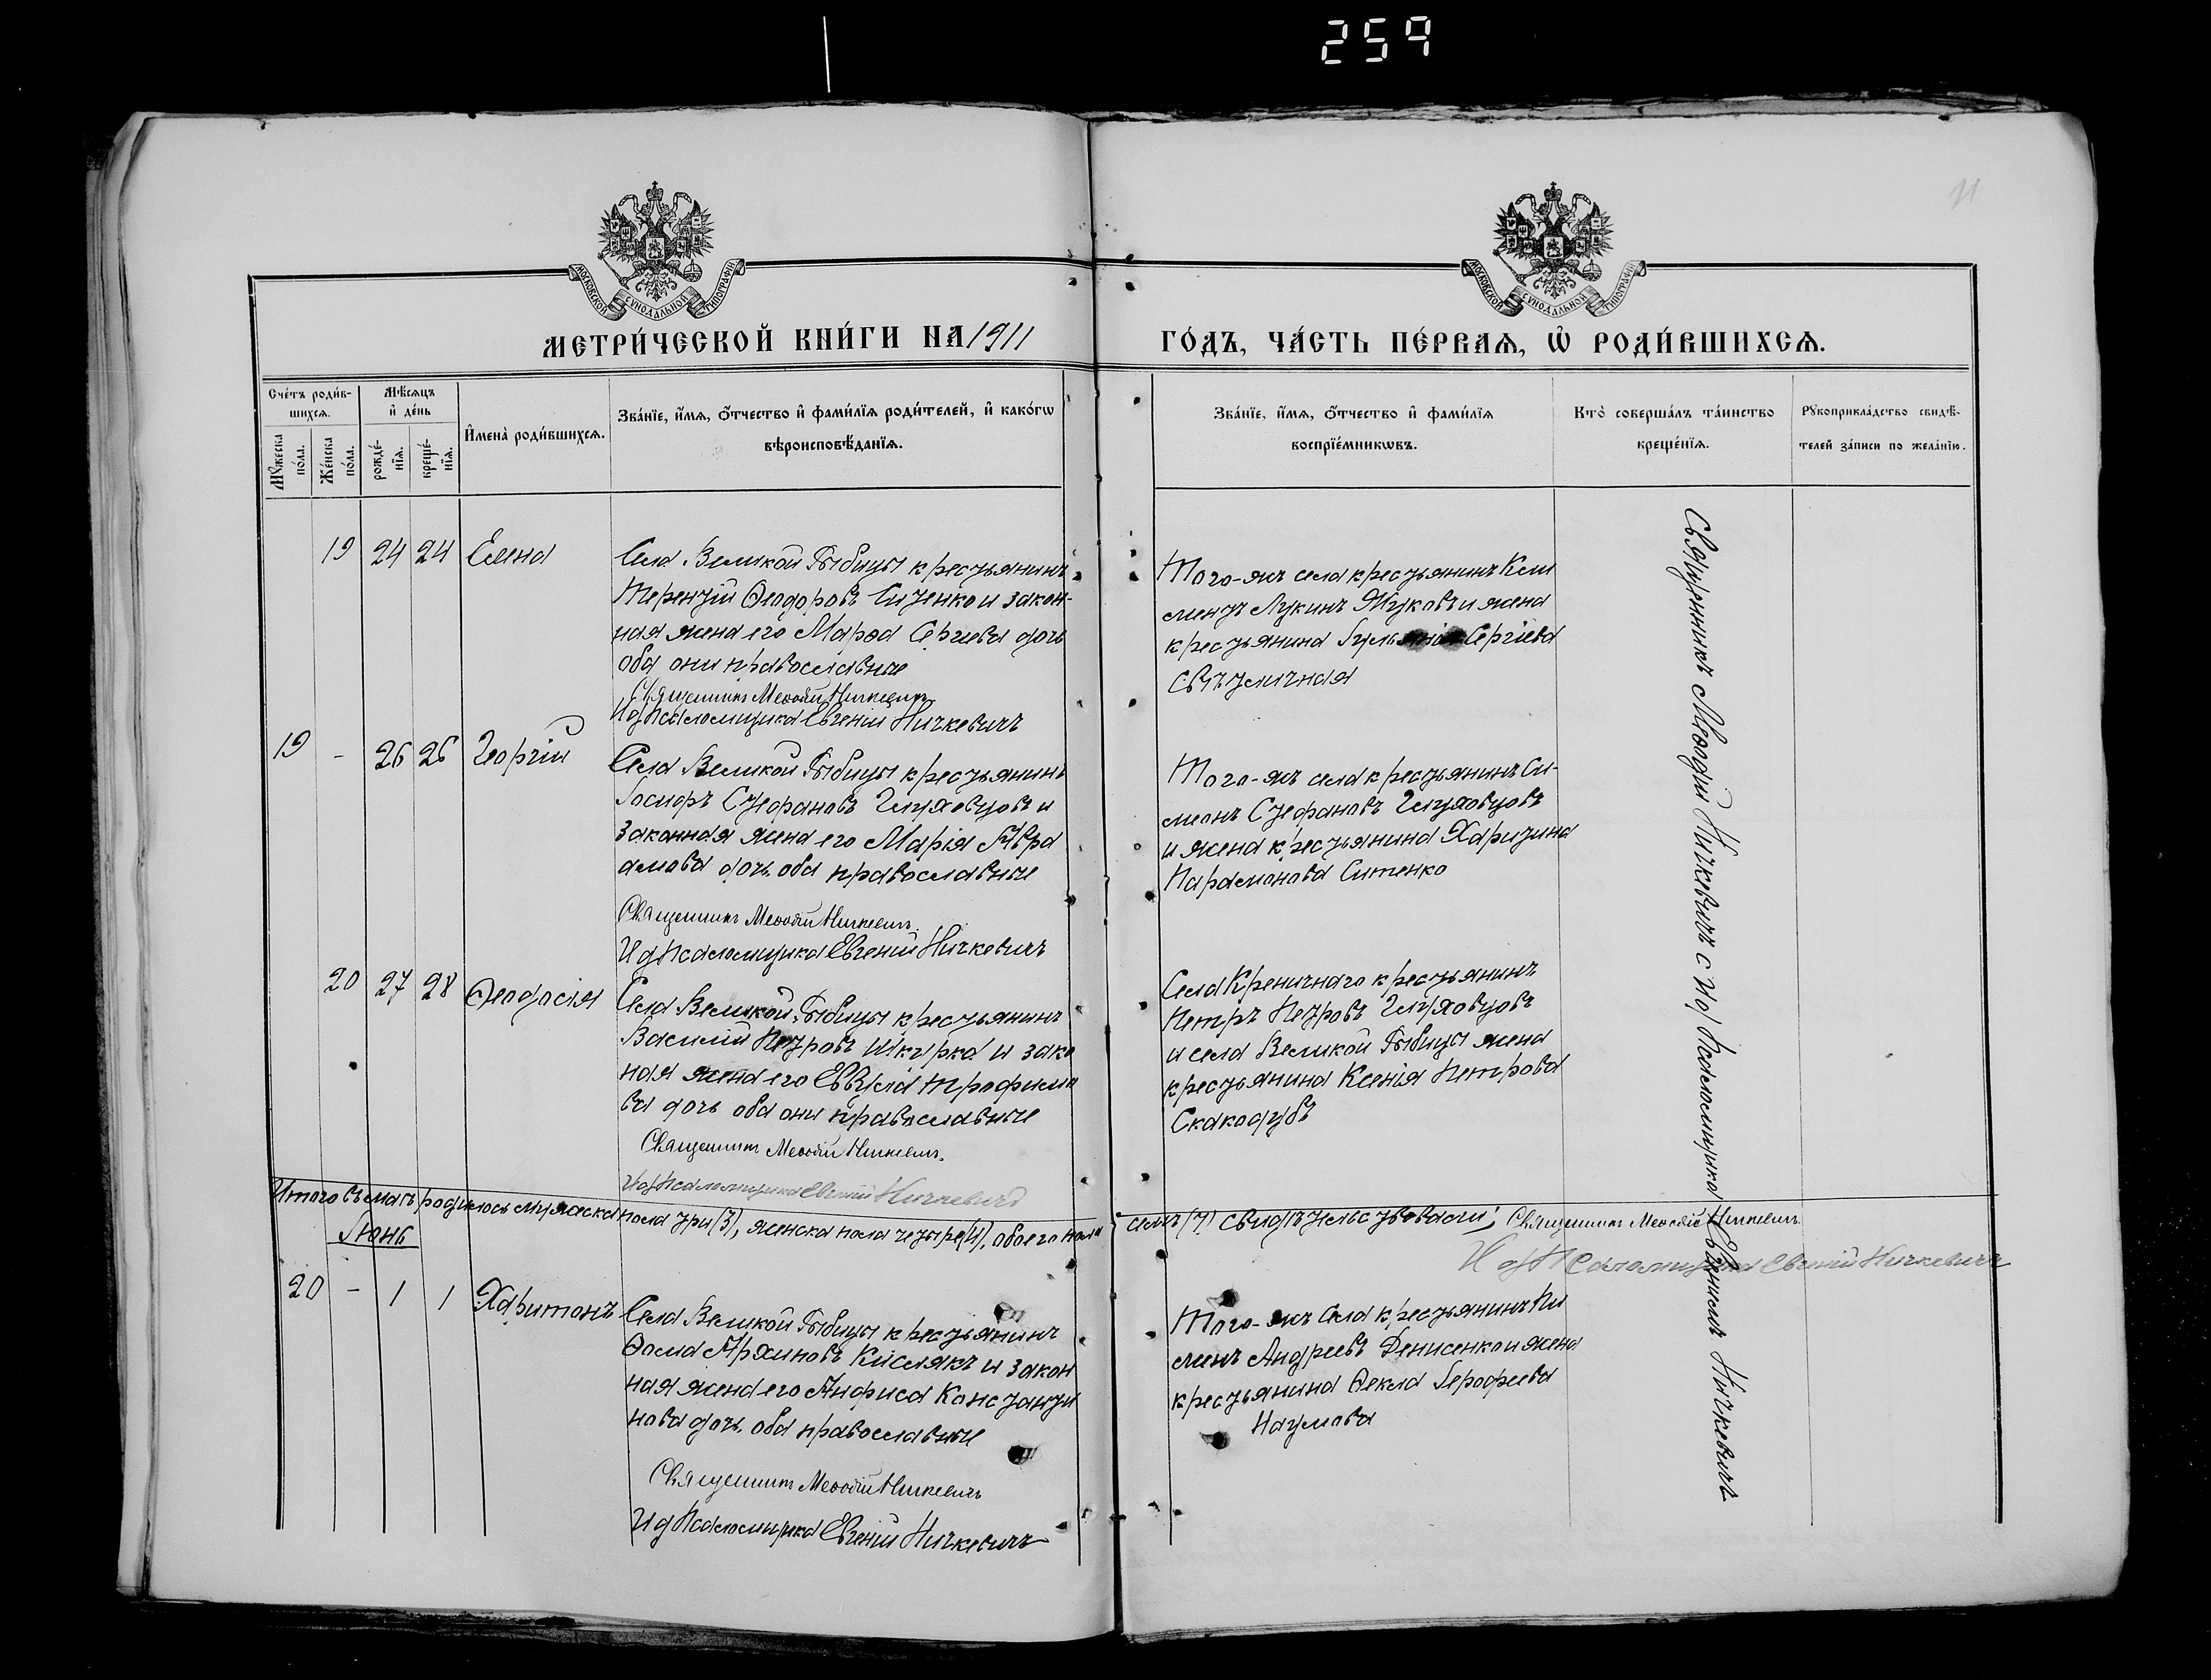 259
11
МОСКОВСКОЙ СѴНОДАЛЬНОЙ ТИПОГРАФІИ
МОСКОВСКОЙ СѴНОДАЛЬНОЙ ТИПОГРАФІИ
МЕТРИ́ЧЕСКОЙ КНИ́ГИ НА 1911
ГО́ДЪ, ЧА́СТЬ ПЕ́РВАѦ, Ѡ҆ РОДИ́ВШИХСѦ.
Сче́тъ роди́в-
шихсѧ.
Мꙋ́жеска по́ла.
Же́нска по́ла.
Мѣ́сѧцъ
и҆ де́нь
рожде́-
нїѧ.
креще́-
нїѧ.
И҆мена̀ роди́вшихсѧ.
Зва́нїе, и҆́мѧ, ѻ҆́тчество и҆ фами́лїѧ роди́телей, и҆ како́гѡ
вѣроисповѣ́данїѧ.
Зва́нїе, и҆́мѧ, ѻ҆́тчество и҆ фами́лїѧ
воспрїе́мникѡвъ.
Кто̀ соверша́лъ та́инство
креще́нїѧ.
Рꙋкоприкла́дство свидѣ́-
телей за́писи по жела́нїю.
19 24 24 Елена
Села Великой Рыбицы крестьянинъ
Терентій Ѳеодоровъ Ситенко и закон-
ная жена его Марѳа Сергиева дочь
оба они православные
Священникъ Меѳодій Ничкевичъ
И д Псаломщика Евгеній Ничкевичъ
Того-жъ села крестьянинъ Кли
ментъ Лукинъ Жуковъ и жена
крестьянина Сергіева
Свѣтличная
19 - 26 26 Георгій
Села Великой Рыбицы крестьянинъ
Іосифъ Стефановъ Глуховцовъ и
законная жена его Марія Авра
амова дочь оба православные
Священникъ Меѳодій Ничкевичъ
И д Псаломщика Евгеній Ничкевичъ
Того-жъ села крестьянинъ Си-
меонъ Стефановъ Глуховцовъ
и жена крестьянина Харитина
Парамонова Ситенко
20 27 28 Ѳеодосія
Села Великой Рыбицы крестьянинъ
Василій Петровъ Шкурка и зако
ная жена его Евдокія Трофимо
ва дочь оба они православные
Священникъ Меѳодій Ничкевичъ
И д Псаломщика Евгеній Ничкевичъ
Села Креничнаго крестьянинъ
Петръ Петровъ Глуховцовъ
и села Великой Рыбицы жена
крестьянина Ксенія Петрова
Скакодубъ
Итого въ маѣ родилось мужеска пола три (3), женска пола четыре (4), обоего пола семь (7) свидѣтельствовали: Священникъ Меѳодій Ничкевичъ
И д Псаломщика Евгеній Ничкевичъ
Іюнь
20 - 1 1 Харитонъ
Села Великой Рыбицы крестьянинъ
Ѳома Архиповъ Кислякъ и закон
ная жена его Анфиса Константи
нова дочь оба православные
Священникъ Меѳодій Ничкевичъ
И д Псаломщика Евгеній Ничкевичъ
Того-жъ села крестьянинъ Пи
менъ Андреевъ Денисенко и жена
крестьянина Ѳекла Іерофеева
Наумова
Священникъ Меѳодій Ничкевичъ с И д Псаломщика Евгеніемъ Ничкевичъ